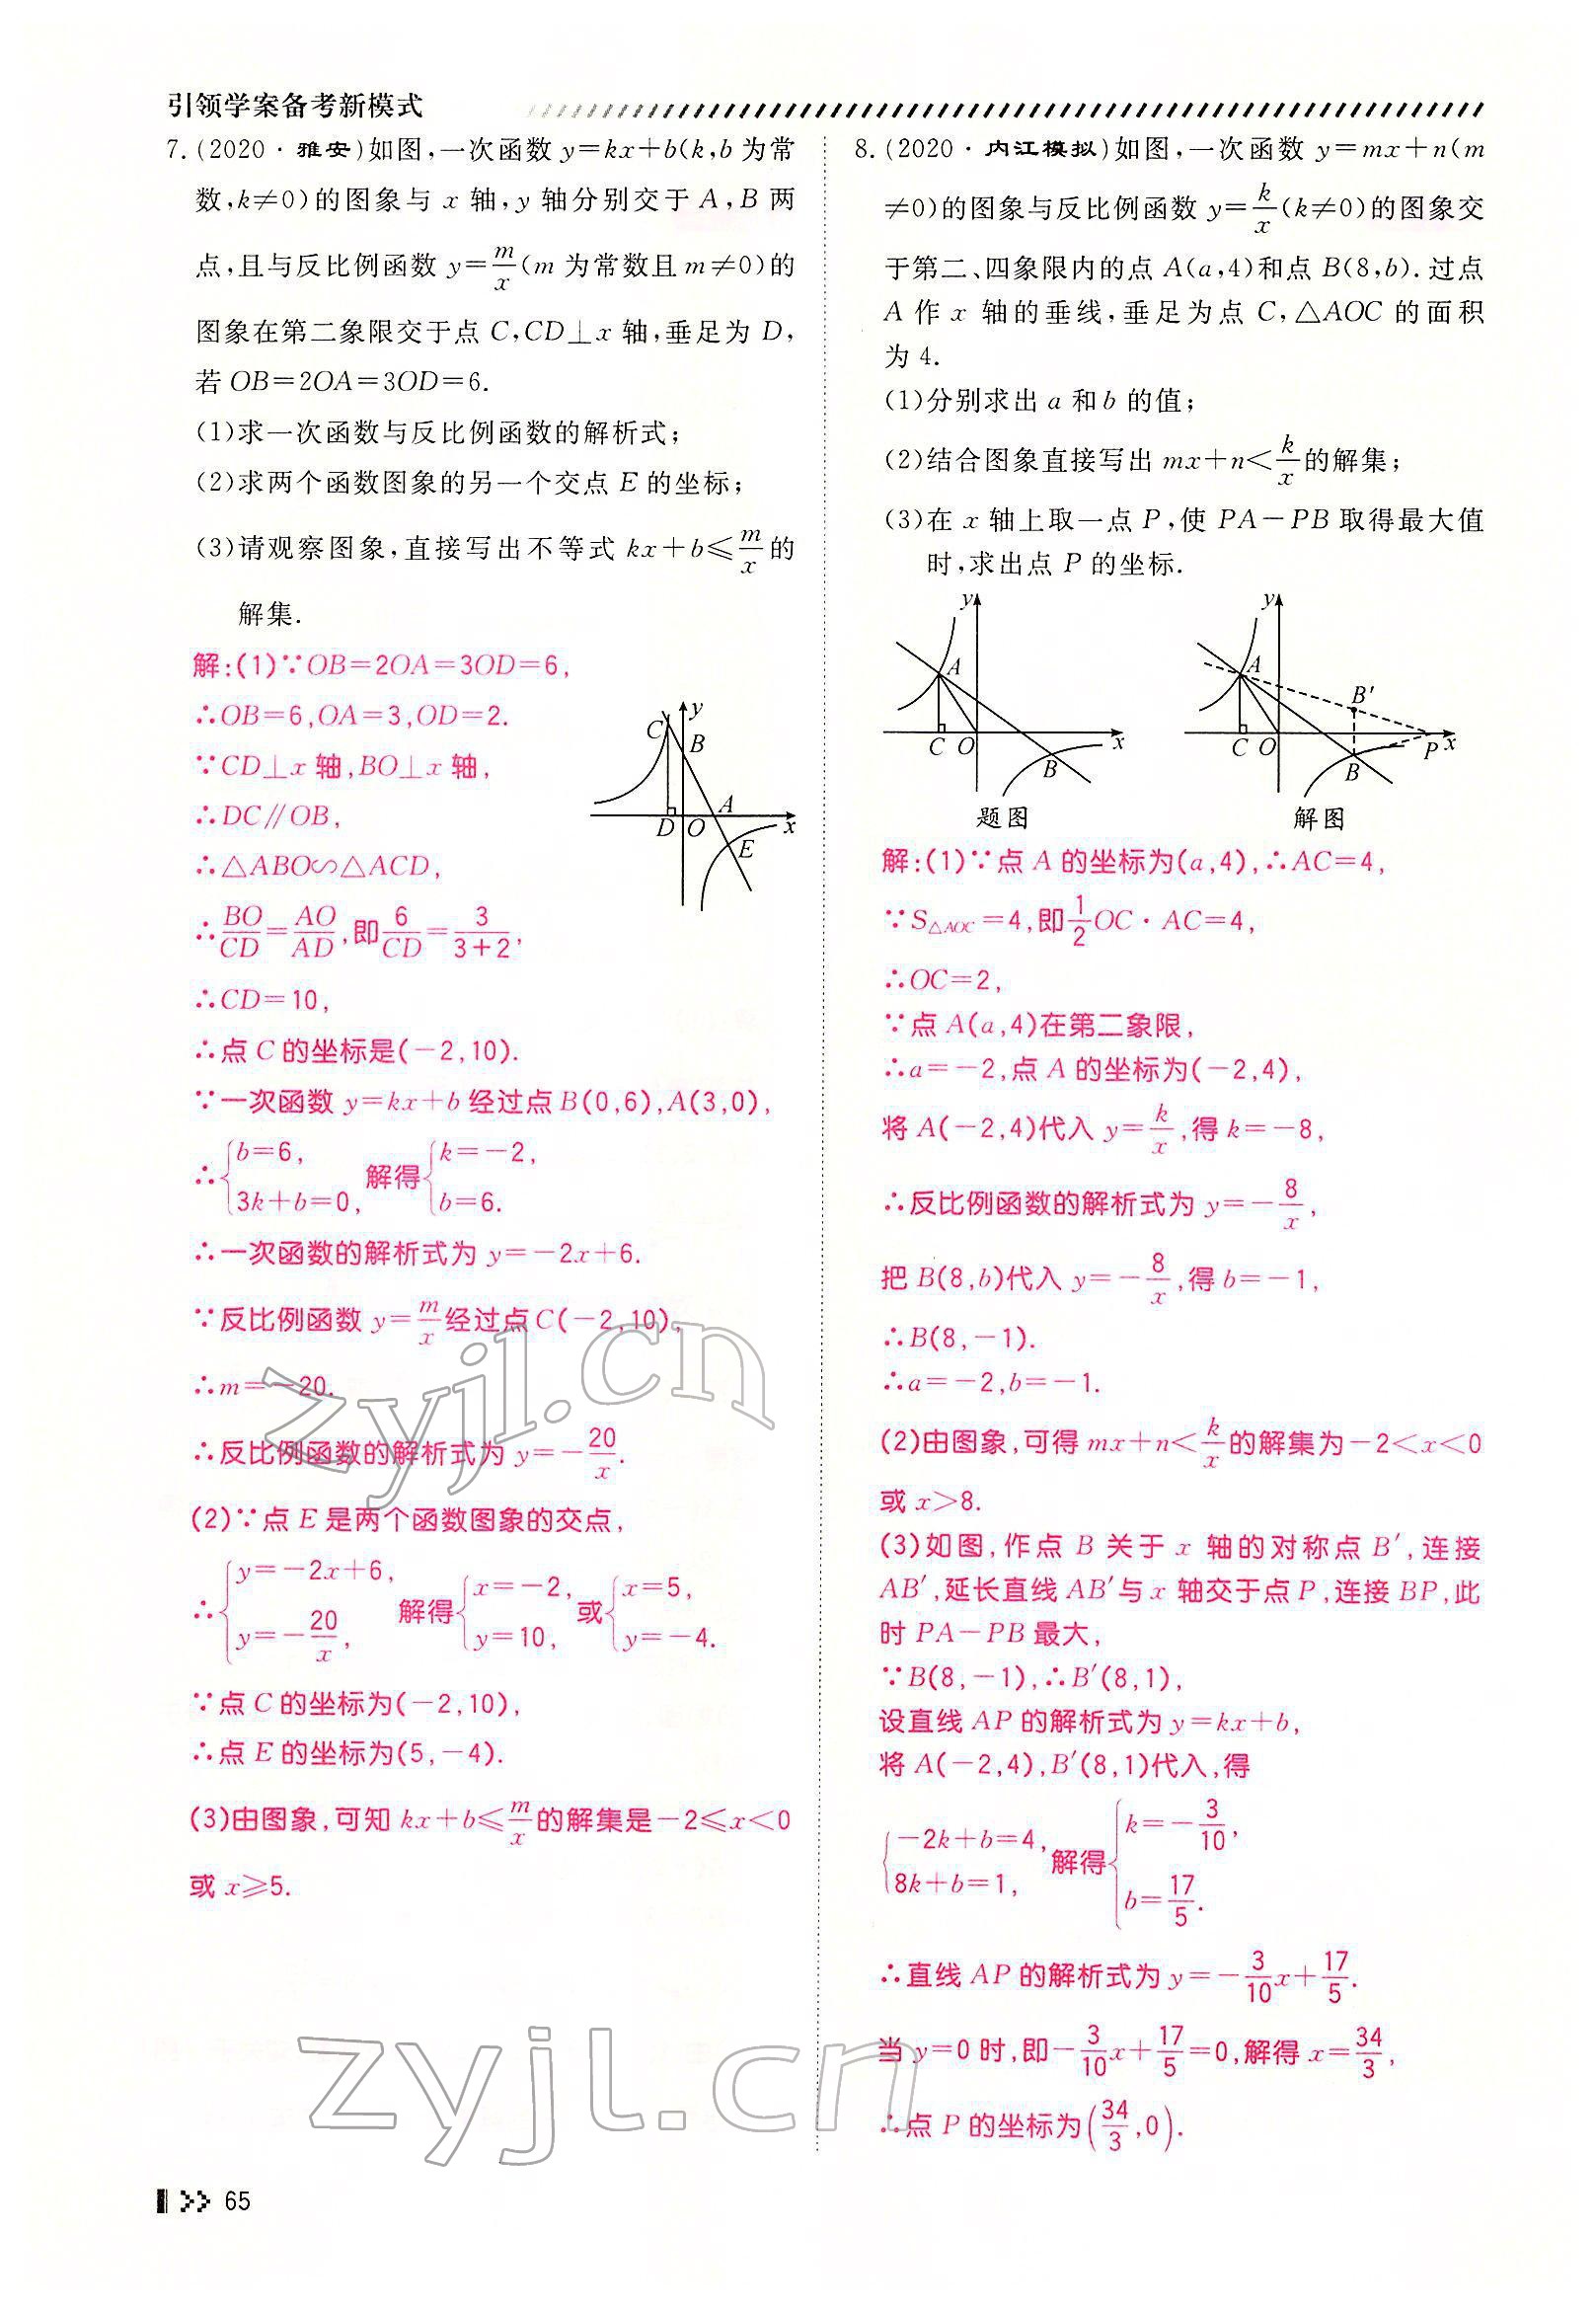 引领学案备考新模式
7.(2020·雅安)如图,一次函数 y=kx+b(k,b为常
数,k≠0)的图象与 x 轴,y 轴分别交于 A,B 两
点,且与反比例函数 y=m/x(m 为常数且 m≠0)的
图象在第二象限交于点 C,CD⊥x 轴,垂足为 D,
若 OB=2OA=3OD=6.
(1)求一次函数与反比例函数的解析式;
(2)求两个函数图象的另一个交点 E 的坐标;
(3)请观察图象,直接写出不等式 kx+b≤m/x的
解集.
解:(1)∵OB=2OA=3OD=6,
∴OB=6,OA=3,OD=2.
∵CD⊥x 轴,BO⊥x 轴,
∴DC∥OB,
∴△ABO∽△ACD,
∴BO/CD=AO/AD,即6/CD=3/(3+2),
∴CD=10,
∴点 C 的坐标是(-2,10).
∵一次函数 y=kx+b 经过点B(0,6),A(3,0),
∴{b=6, 3k+b=0, 解得{k=-2, b=6.
∴一次函数的解析式为 y=-2x+6.
∵反比例函数 y=m/x经过点C(-2,10),
∴m=-20.
∴反比例函数的解析式为 y=-20/x.
(2)∵点 E 是两个函数图象的交点,
∴{y=-2x+6, y=-20/x, 解得{x=-2, y=10, 或{x=5, y=-4.
∵点 C 的坐标为(-2,10),
∴点 E 的坐标为(5,-4).
(3)由图象,可知 kx+b≤m/x的解集是-2≤x<0
或 x≥5.
y
C
B
A
D
O
x
E
8.(2020·内江模拟)如图,一次函数 y=mx+n(m
≠0)的图象与反比例函数 y=k/x(k≠0)的图象交
于第二、四象限内的点 A(a,4)和点 B(8,b).过点
A 作 x 轴的垂线,垂足为点 C,△AOC 的面积
为 4.
(1)分别求出 a 和 b 的值;
(2)结合图象直接写出 mx+n<k/x的解集;
(3)在 x 轴上取一点 P,使 PA-PB 取得最大值
时,求出点 P 的坐标.
y
A
C
O
x
B
题图
y
A
B′
C
O
P
x
B
解图
解:(1)∵点 A 的坐标为(a,4),∴AC=4,
∵S△AOC=4,即1/2OC·AC=4,
∴OC=2,
∵点 A(a,4)在第二象限,
∴a=-2,点 A 的坐标为(-2,4),
将 A(-2,4)代入 y=k/x,得 k=-8,
∴反比例函数的解析式为 y=-8/x,
把 B(8,b)代入 y=-8/x,得 b=-1,
∴B(8,-1).
∴a=-2,b=-1.
(2)由图象,可得 mx+n<k/x的解集为-2<x<0
或 x>8.
(3)如图,作点 B 关于 x 轴的对称点 B′,连接
AB′,延长直线 AB′与 x 轴交于点 P,连接 BP,此
时 PA-PB 最大,
∵B(8,-1),∴B′(8,1),
设直线 AP 的解析式为 y=kx+b,
将 A(-2,4),B′(8,1)代入,得
{-2k+b=4, 8k+b=1, 解得{k=-3/10, b=17/5.
∴直线 AP 的解析式为 y=-3/10x+17/5.
当 y=0 时,即-3/10x+17/5=0,解得 x=34/3,
∴点 P 的坐标为(34/3,0).
zyjl.cn
zyjl.cn
65